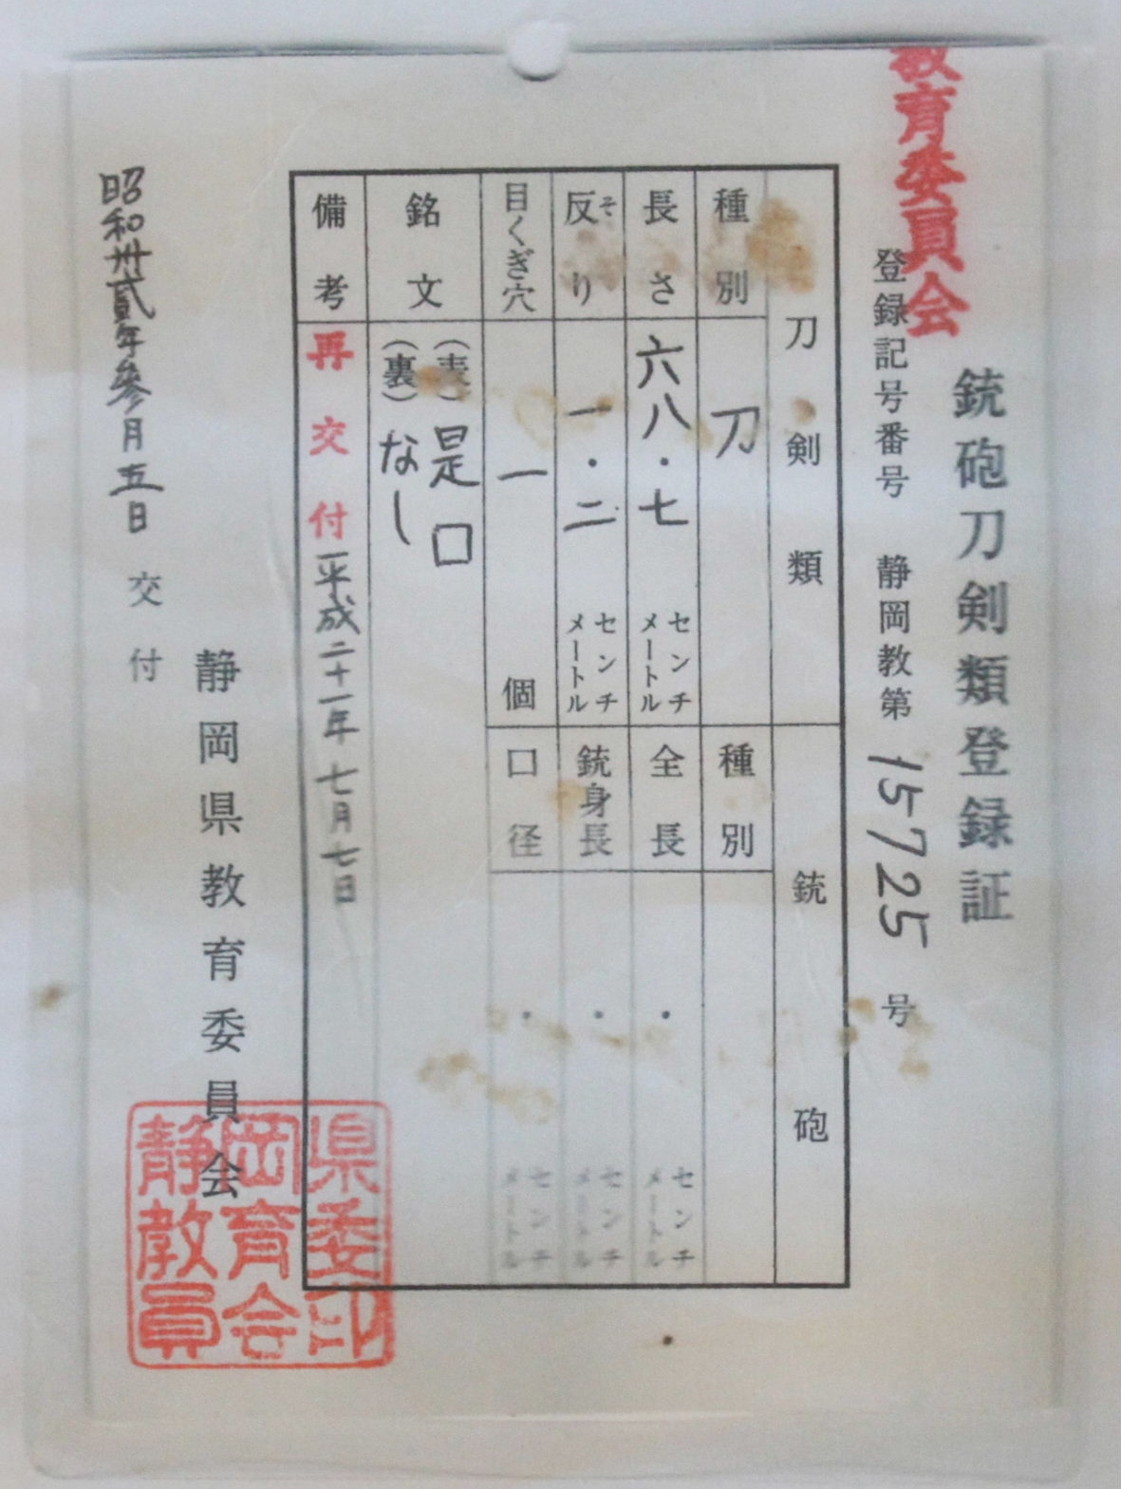 教育委員会
銃砲刀剣類登録証
登録記号番号 静岡教第 15725 号
刀剣類
種別 刀
長さ 六八・七 センチメートル
反り そ 一・二 センチメートル
目くぎ穴 一 個
銘文 (表) 是 □
(裏) なし
備考 再交付 平成二十一年七月七日
銃砲
種別
全長 ・ センチメートル
銃身長 ・ センチメートル
口径 ・ センチメートル
静岡県教育委員会
昭和卅貳年參月五日 交付
県委印
岡育会
静教員